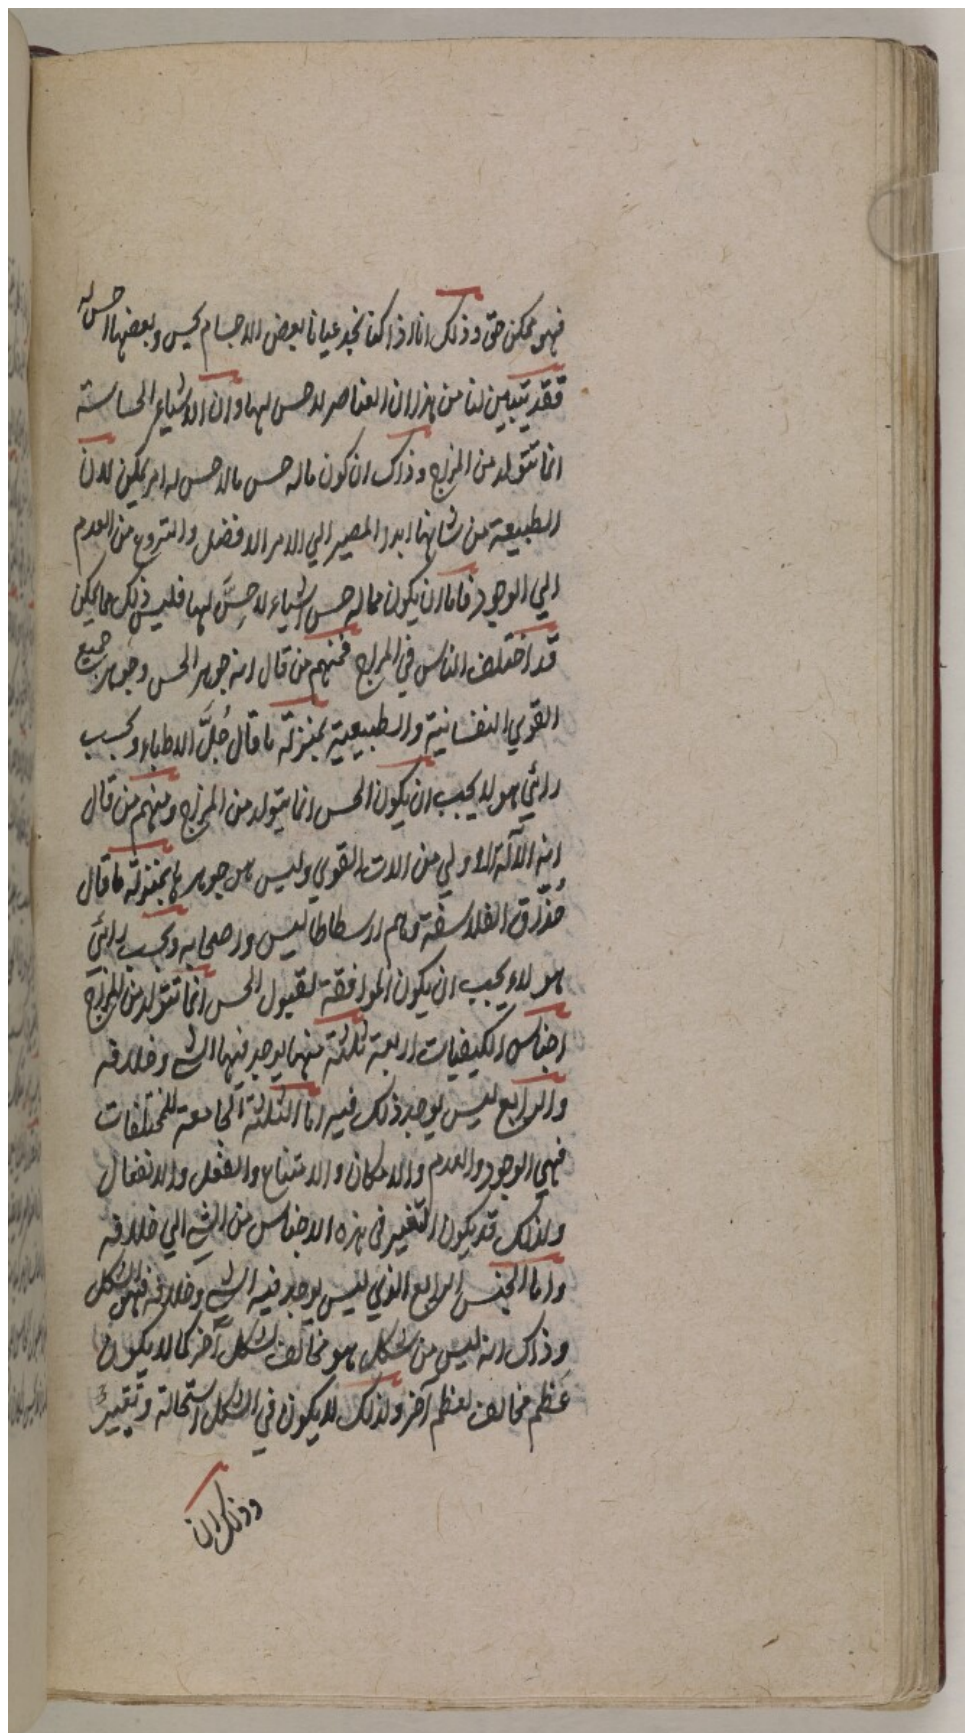 فهو ممكن حق وذلك انا اذا كنا نجد عيانا بعض الاجسام يحس وبعضها لاحس له
فقد يتبين لنا من هذا ان العناصر لاحس لها وان الاشياء الحاسة
انما تتولد من المزاج وذلك ان كون ماله حس مالاحس له امر يمكن لان
الطبيعة من شانها ابدا المصير الي الامر الافضل والتروع من العدم
الي الوجود فاما ان يكون مماله حس اشياء لاحِسَّ لها فليس ذلك مما يمكن
قد اختلف الناس في المزاج فمنهم من قال انه جوهر الحس وجوهر جميع
القوي النفسانية والطبيعية بمنزلة ما قال جُلَّ الاطباء وبحسب
رائي هولا يجب ان يكون الحس انما يتولد من المزاج ومنهم من قال
انه الآلة الاولي من الات القوي وليس هو جوهرها بمنزلة ما قال
حُذّاق الفلاسفة وهم ارسطاطاليس واصحابه وبحسب رائي
هولاء يجب ان يكون الموافقة لقبول الحس انما تتولد من المزاج
اجناس الكيفيات اربعة ثلثة منها يوجد فيها الشي وخلافه
والرابع ليس يوجد ذلك فيه اما الثلثة الجامعة للمختلفات
فهي الوجود والعدم والامكان والامتناع والفعل والانفعال
ولذلك قد يكون التغيير في هذه الاجناس من الشي الي خلافه
واما الجنس الرابع الذي ليس يوجد فيه الشي وخلافه فهو الشكل
وذلك انه ليس من شكل هو مخالف لشكل آخر كما لا يكون
عَظم مخالف لعظم آخر ولذلك لا يكون في الشكل استحالة وتغييرٌ
وذلك ان